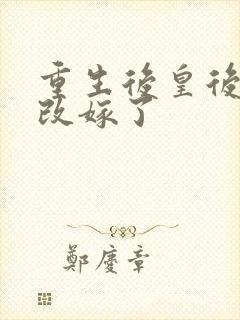 重生後皇後
改嫁了
鄭慶章